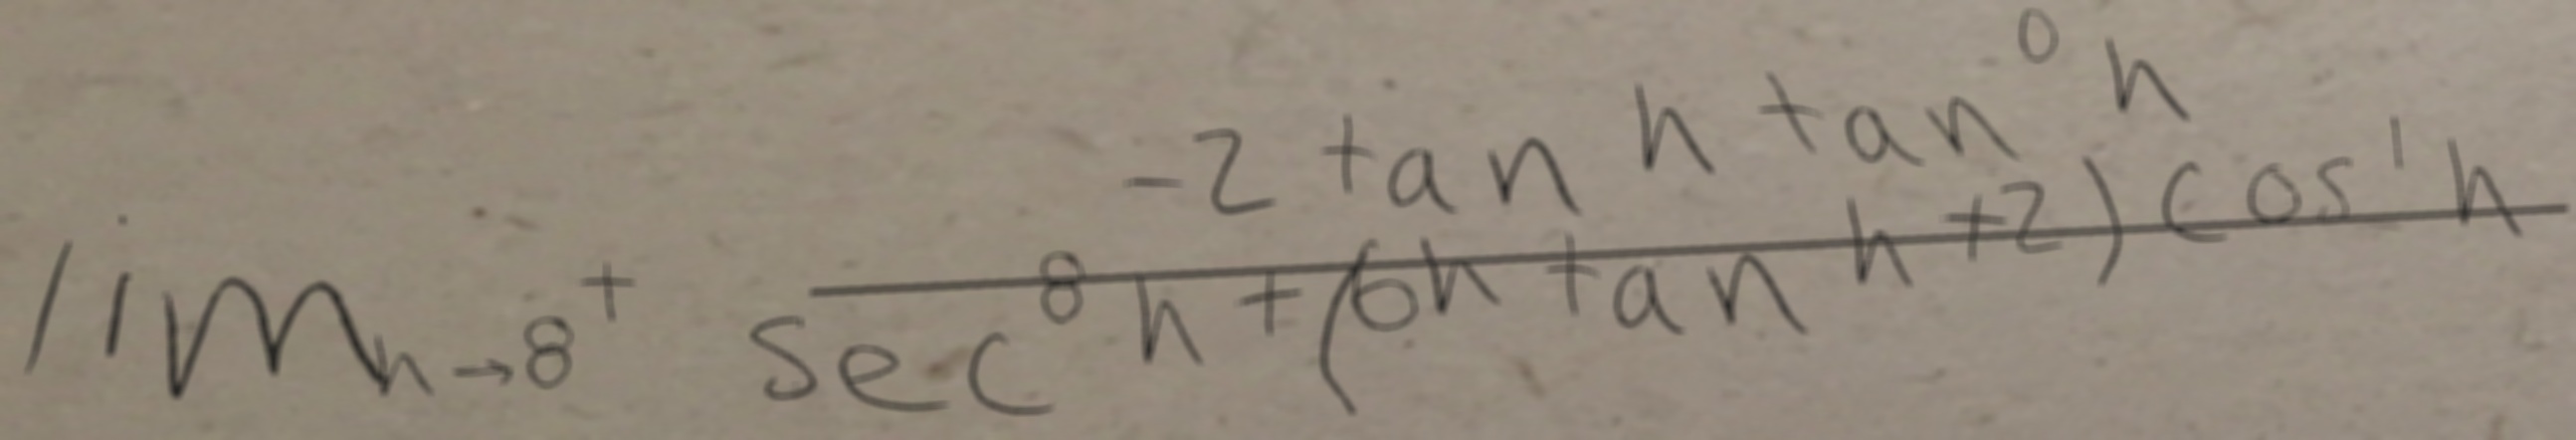 \lim_{h \to 8^+} \frac{-2 \tan h \tan^0 h}{\sec^8 h + (6h \tan h + 2) \cos^1 h}